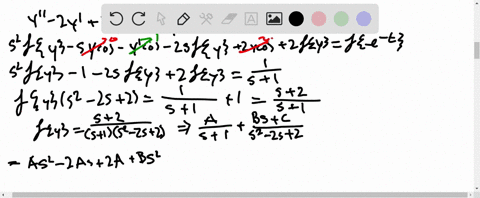 y'' - 2y' +
s²ℒ{y} - sy(0) - y'(0) - 2sℒ{y} + 2y(0) + 2ℒ{y} = ℒ{e^-t}
s²ℒ{y} - 1 - 2sℒ{y} + 2ℒ{y} = 1/(s+1)
ℒ{y}(s² - 2s + 2) = 1/(s+1) + 1 = (s+2)/(s+1)
ℒ{y} = (s+2)/((s+1)(s²-2s+2)) ⇒ A/(s+1) + (Bs+C)/(s²-2s+2)
= As² - 2As + 2A + Bs²